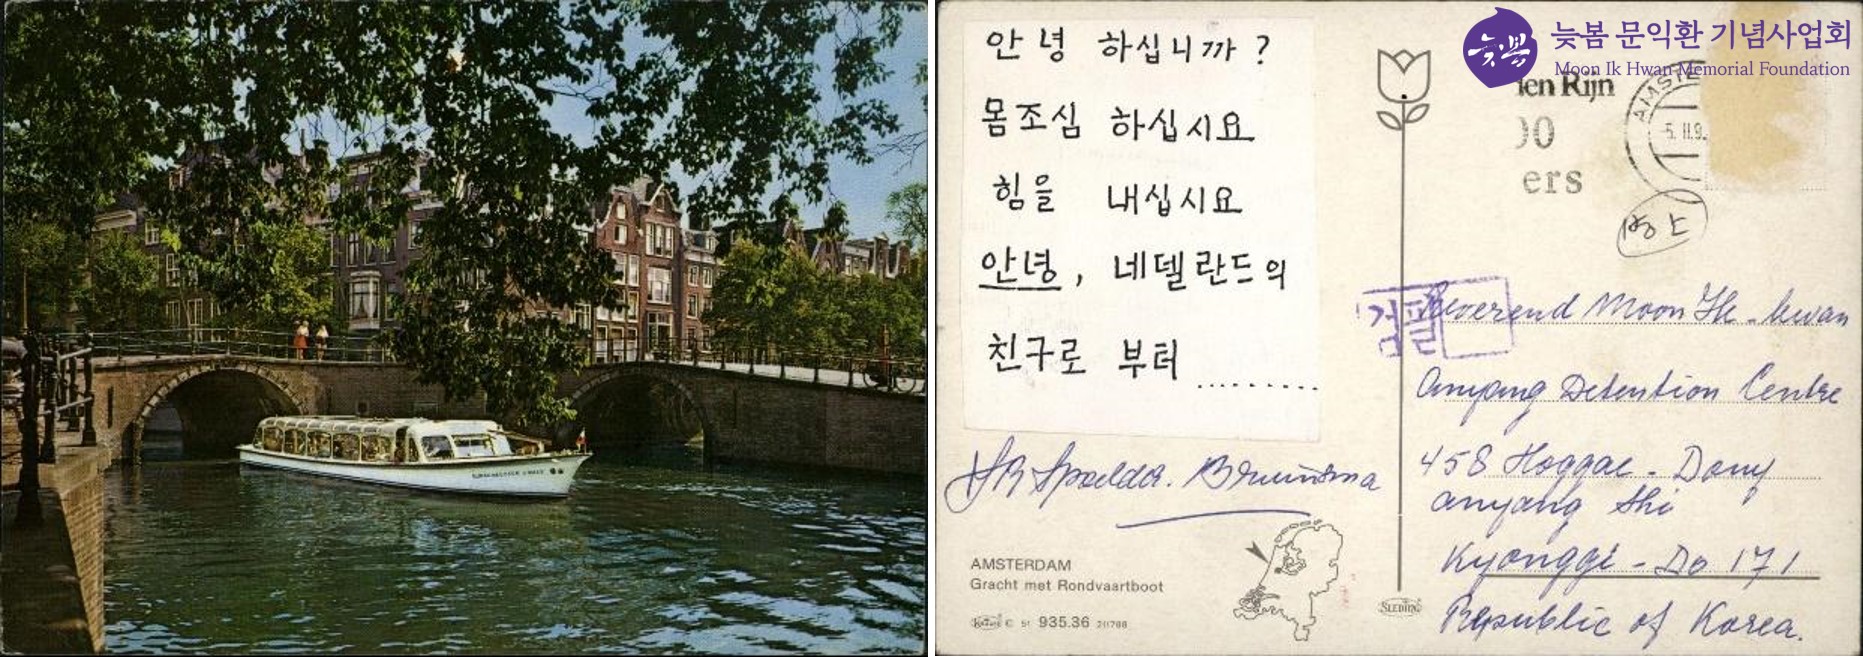 늦봄 문익환 기념사업회
Moon Ik Hwan Memorial Foundation
안녕 하십니까 ?
몸조심 하십시요
힘을 내십시요
안녕, 네델란드의
친구로 부터 ..........
Bruinsma
AMSTERDAM
Gracht met Rondvaartboot
© 51 935.36
SLEDING
Rijn
ers
AMSTE
5. II.9
검필
Reverend Moon Ik-hwan
Anyang Detention Centre
458 Hoggae-Dong
Anyang Shi
Kyonggi-Do 171
Republic of Korea.